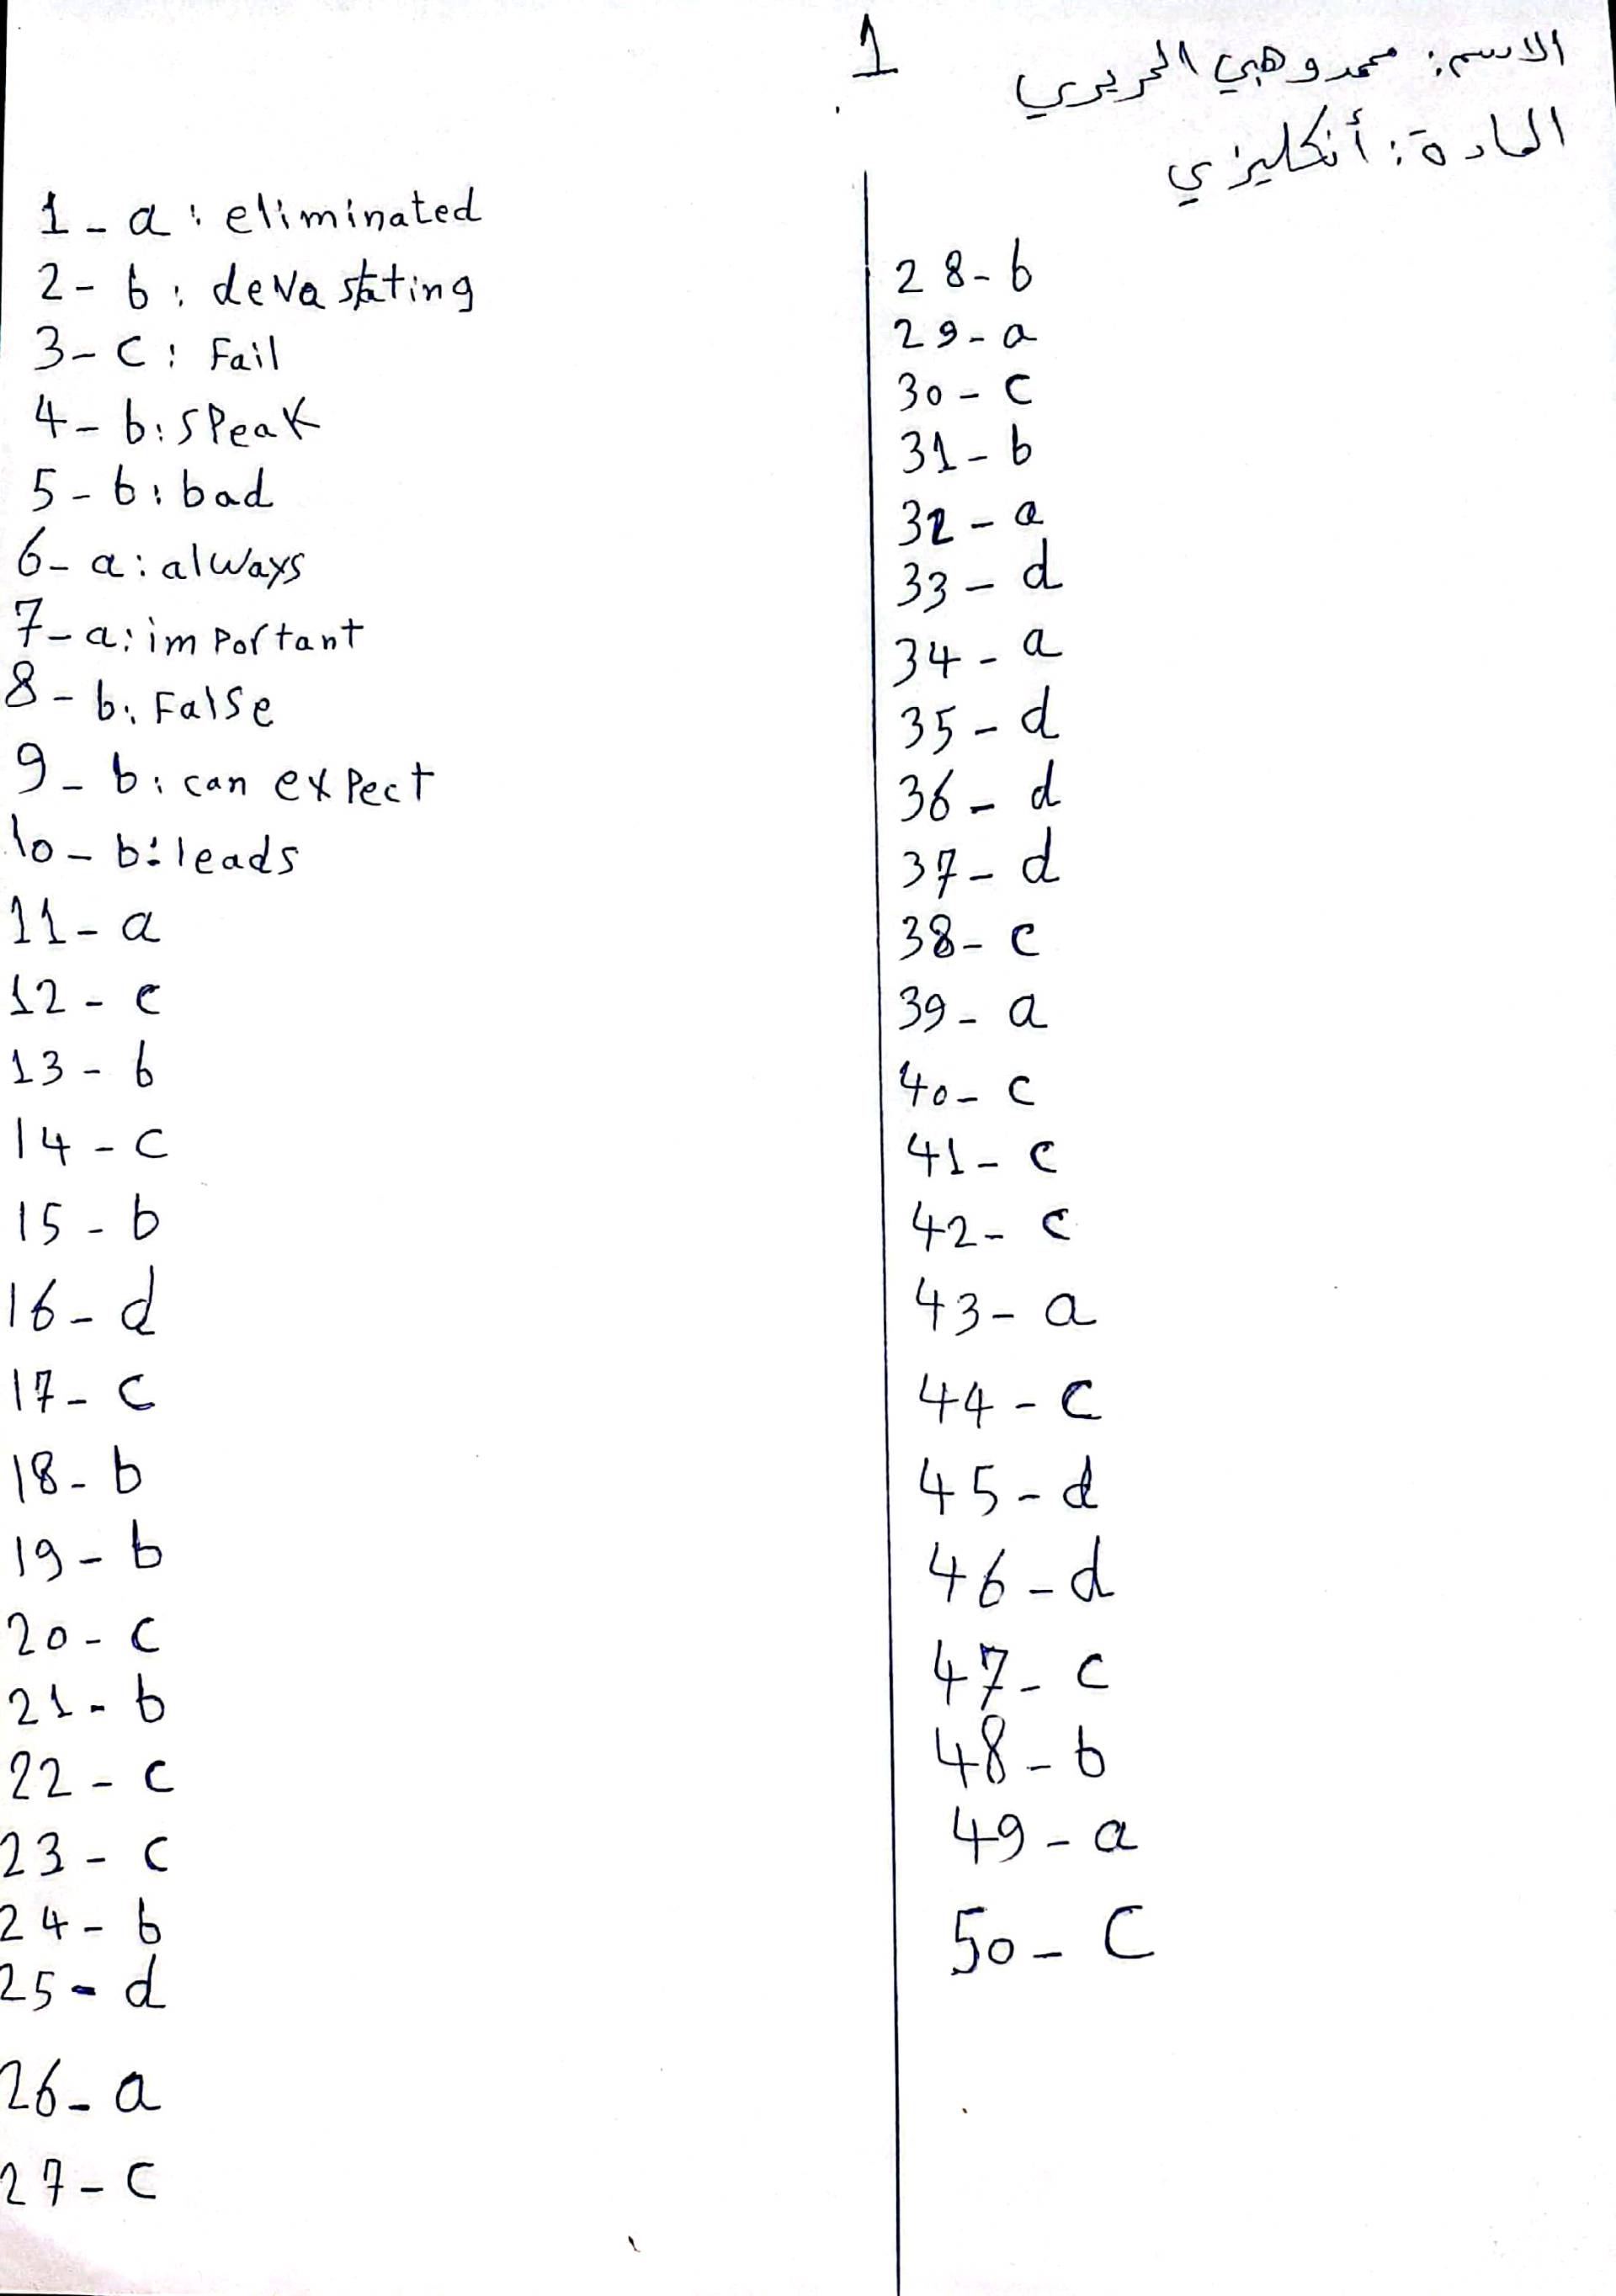 1
الاسم: محمد وهبي الحريري
المادة: أنكليزي
1 - a: eliminated
2 - b: devastating
3 - c: Fail
4 - b: speak
5 - b: bad
6 - a: always
7 - a: important
8 - b: False
9 - b: can expect
10 - b: leads
11 - a
12 - c
13 - b
14 - c
15 - b
16 - d
17 - c
18 - b
19 - b
20 - c
21 - b
22 - c
23 - c
24 - b
25 - d
26 - a
27 - c
28 - b
29 - a
30 - c
31 - b
32 - a
33 - d
34 - a
35 - d
36 - d
37 - d
38 - c
39 - a
40 - c
41 - c
42 - c
43 - a
44 - c
45 - d
46 - d
47 - c
48 - b
49 - a
50 - C